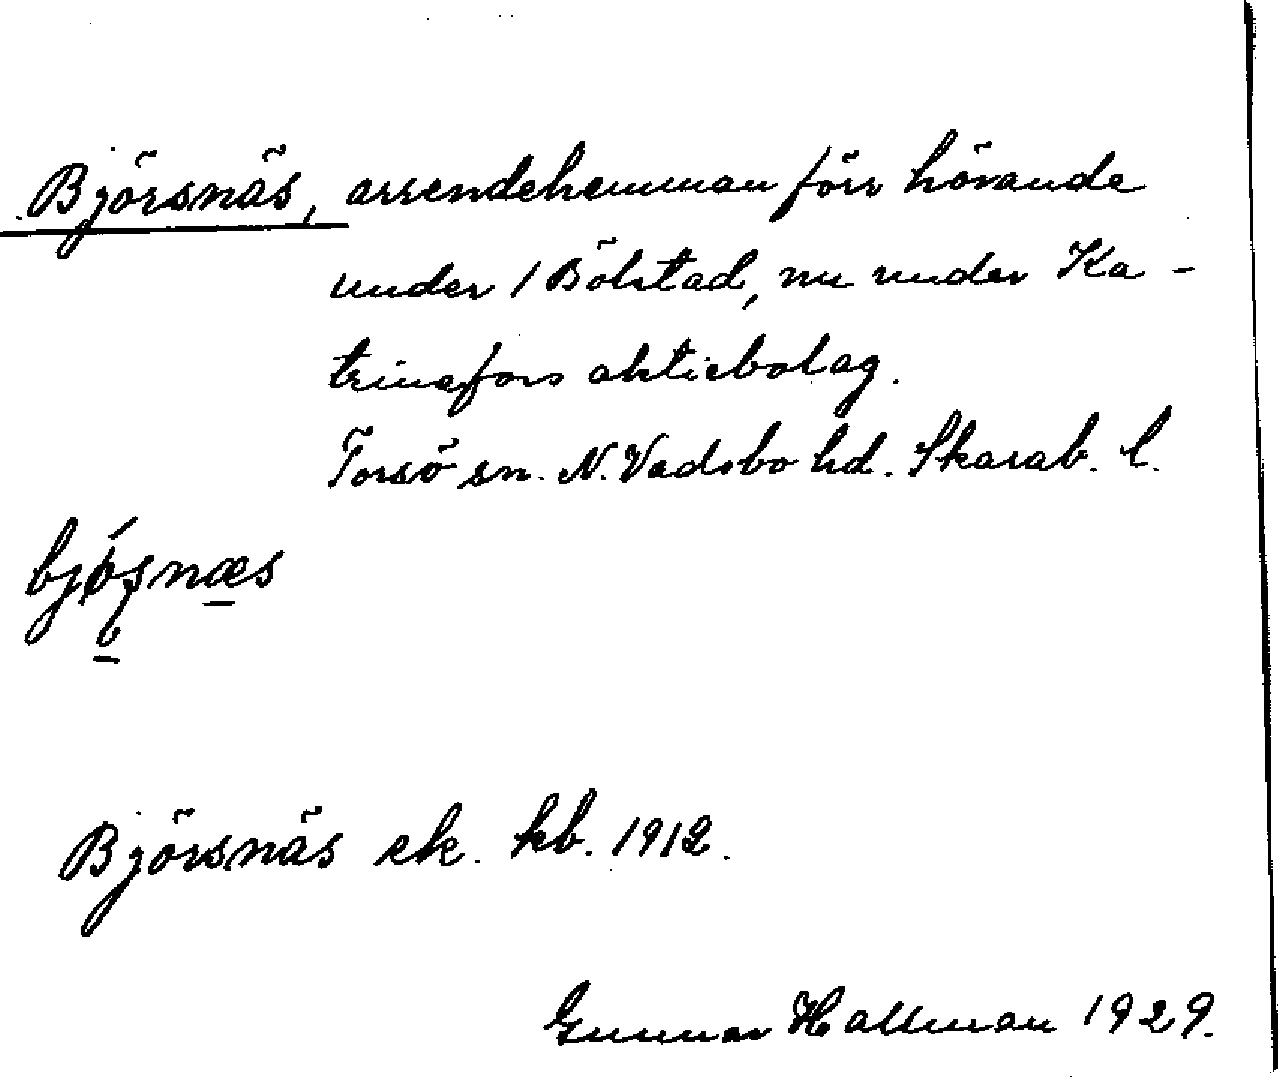 Björsnäs, arrendehemman förr hörande
under 1 Bölstad, nu under Ka-
trinefors aktiebolag.
Torsö sn. N. Vadsbo hd. Skarab. l.
Björsnäs ek. kb. 1912.
Gunnar Hallman 1929.